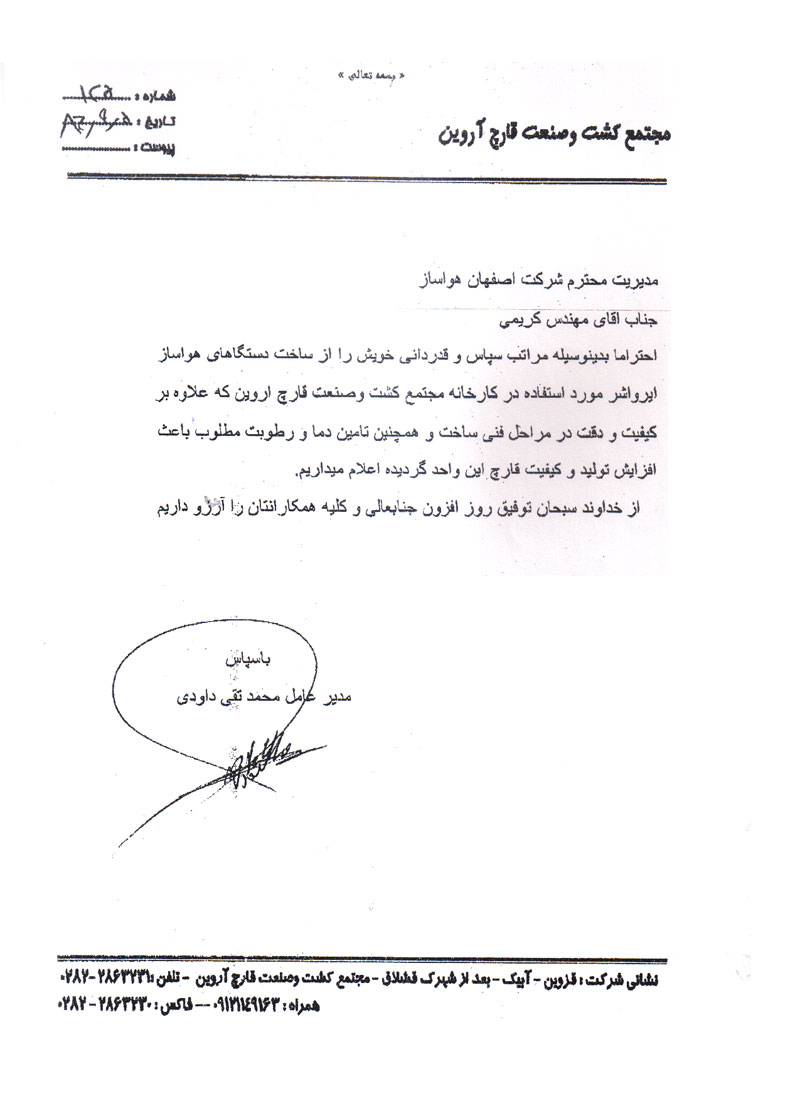 « بسمه تعالی »
شماره : ۱۲۵
تاریخ :
پیوست :
مجتمع کشت وصنعت قارچ آروین
مدیریت محترم شرکت اصفهان هواساز
جناب اقای مهندس کریمي
احتراما بدینوسیله مراتب سپاس و قدردانی خویش را از ساخت دستگاهای هواساز
ایرواشر مورد استفاده در کارخانه مجتمع کشت وصنعت قارچ اروین که علاوه بر
کیفیت و دقت در مراحل فنی ساخت و همچنین تامین دما و رطوبت مطلوب باعث
افزایش تولید و کیفیت قارچ این واحد گردیده اعلام میداریم.
از خداوند سبحان توفیق روز افزون جنابعالي و کلیه همکارانتان را آرزو داریم
باسپاس
مدیر عامل محمد تقی داودی
نشانی شرکت : قزوین - آبیک - بعد از شهرک قشلاق - مجتمع کشت وصنعت قارچ آروین - تلفن : ۲۸۶۳۲۳۱ - ۰۲۸۲
همراه : ۰۹۱۲۱۱۴۹۱۶۳ -- فاکس : ۲۸۶۳۲۳۰ - ۰۲۸۲